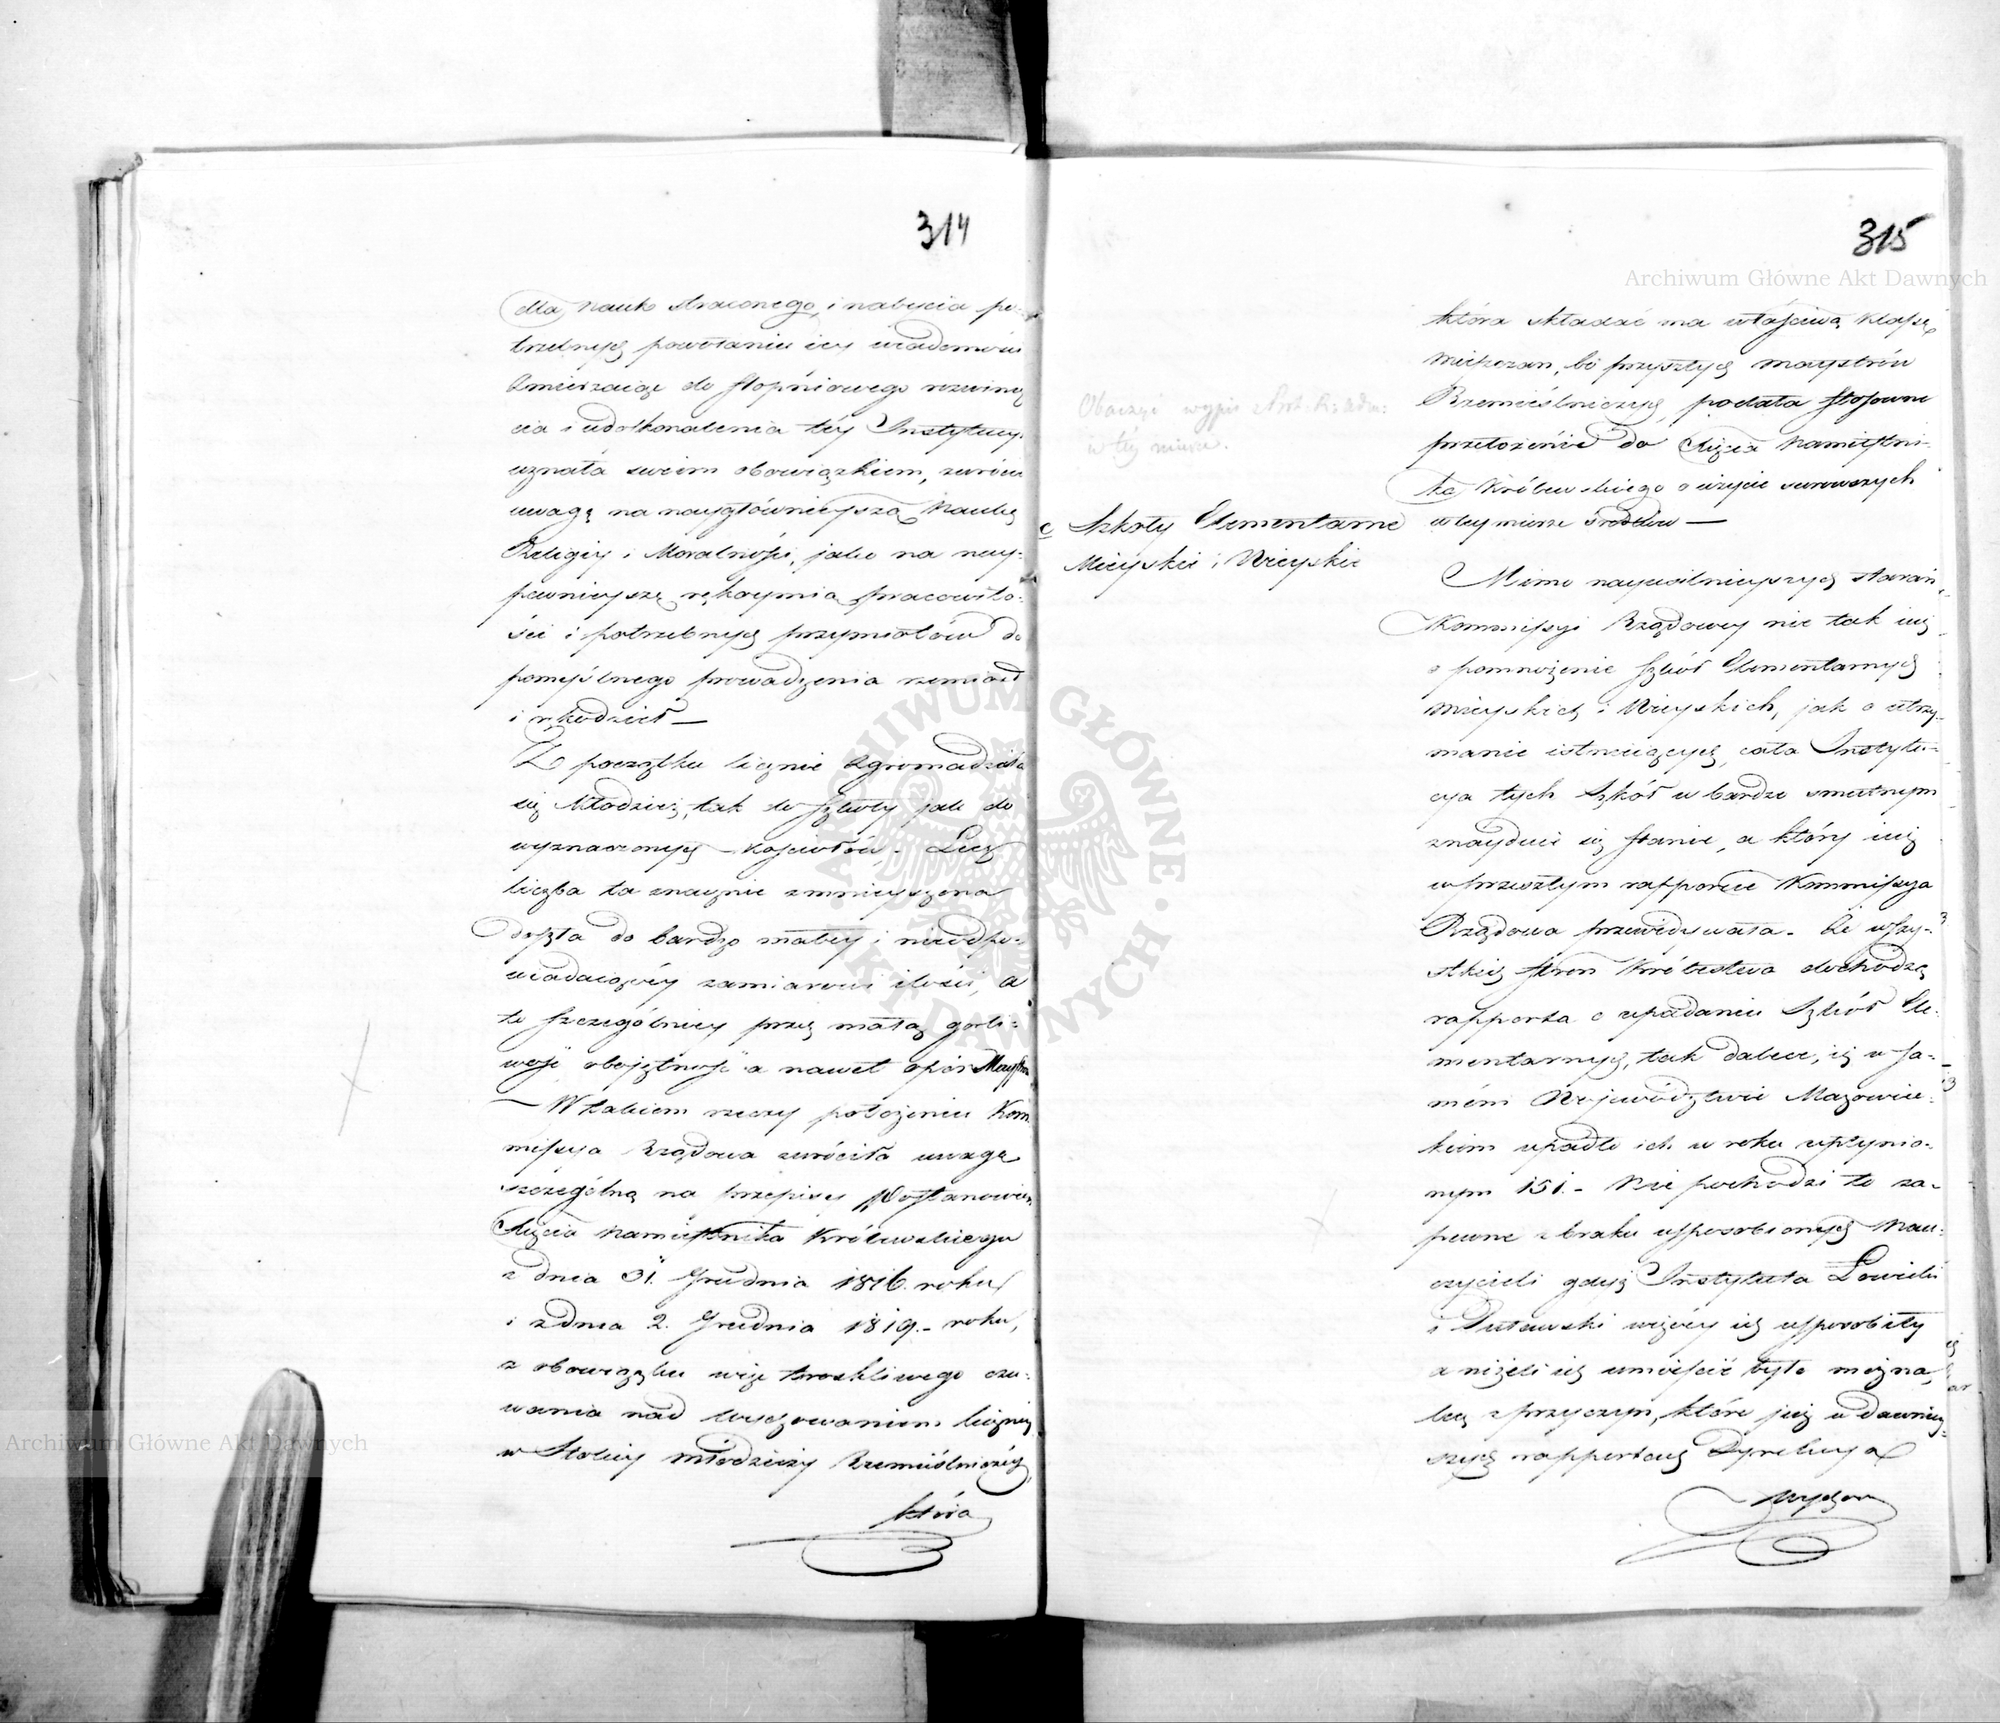 314
dla nauk straconego, i nabycia po-
trzebnych powołaniu iey wiadomości
Zmierzaiąc do stopniowego rozwinię
cia i udoskonalenia téy Instytucyi
uznała swoim obowiązkiem, zwrócić
uwagę na naygłównieyszą Naukę
Religiy i Moralności, jako na nay-
pewnieyszą rękoymią pracowito-
ści i potrzebnych przymiotów do
pomyślnego prowadzenia rzemiosł
i rękodzieł —
Z początku licznie zgromadzała
się Młodzież, tak do Szkoły jak do
wyznaczonych Kościołów. Lecz
liczba ta znacznie zmnieyszona
doszła do bardzo małey i nieodpo-
wiadaiącéy zamiarowi ilości, a
to szczególniey przez małą gorli-
wość obojętność a nawet opór Maystrów
— W takiem rzeczy położeniu Kom-
missya Rządowa zwróciła uwagę
szczególną na przepisy Postanowień
Xięcia Namiestnika Królewskiego
z dnia 31. Grudnia 1816. roku
i z dnia 2. Grudnia 1819. roku,
z obowiązku więc troskliwego czu-
wania nad wychowaniem liczney
w Stolicy młodzieży Rzemieślniczéy,
która
315
Archiwum Główne Akt Dawnych
która składać ma właściwą klassę
Mieszczan, bo przyszłych maystrów
Rzemieślniczych, podała stosowne
przełożenie do Xięcia Namiestni-
ka Królewskiego o użycie surowszych
w tey mierze środków —
Obaczyć wypis z Prot. Rady Adm:
w téy mierze.
c Szkoły Elementarne
Mieyskie i Wieyskie
Mimo nayusilnieyszych starań,
Kommissyi Rządowey nie tak iuż
o pomnożenie Szkół Elementarnych
Mieyskich i Wieyskich, jak o utrzy-
manie istnieiących, cała Instytu-
cya tych Szkół w bardzo smutnym
znayduie się stanie, a który iuż
w przeszłym rapporcie Kommissya
Rządowa przewidywała. Ze wszy-
stkich stron Królestwa dochodzą
rapporta o upadaniu Szkół Ele-
mentarnych, tak dalece, iż w sa-
mém Województwie Mazowiec-
kiem upadło ich w roku upłynio-
nym 151. — Nie pochodzi to za-
pewne z braku usposobionych Nau-
czycieli gdyż Instytuta Łowicki
i Puławski więcéy ich usposobiły
aniżeli ich umieścić było można,
lecz z przyczyn, które już w dawniey-
szych rapportach Dyrekcya
Wychow
Archiwum Główne Akt Dawnych
ARCHIWUM GŁÓWNE · AKT DAWNYCH ·